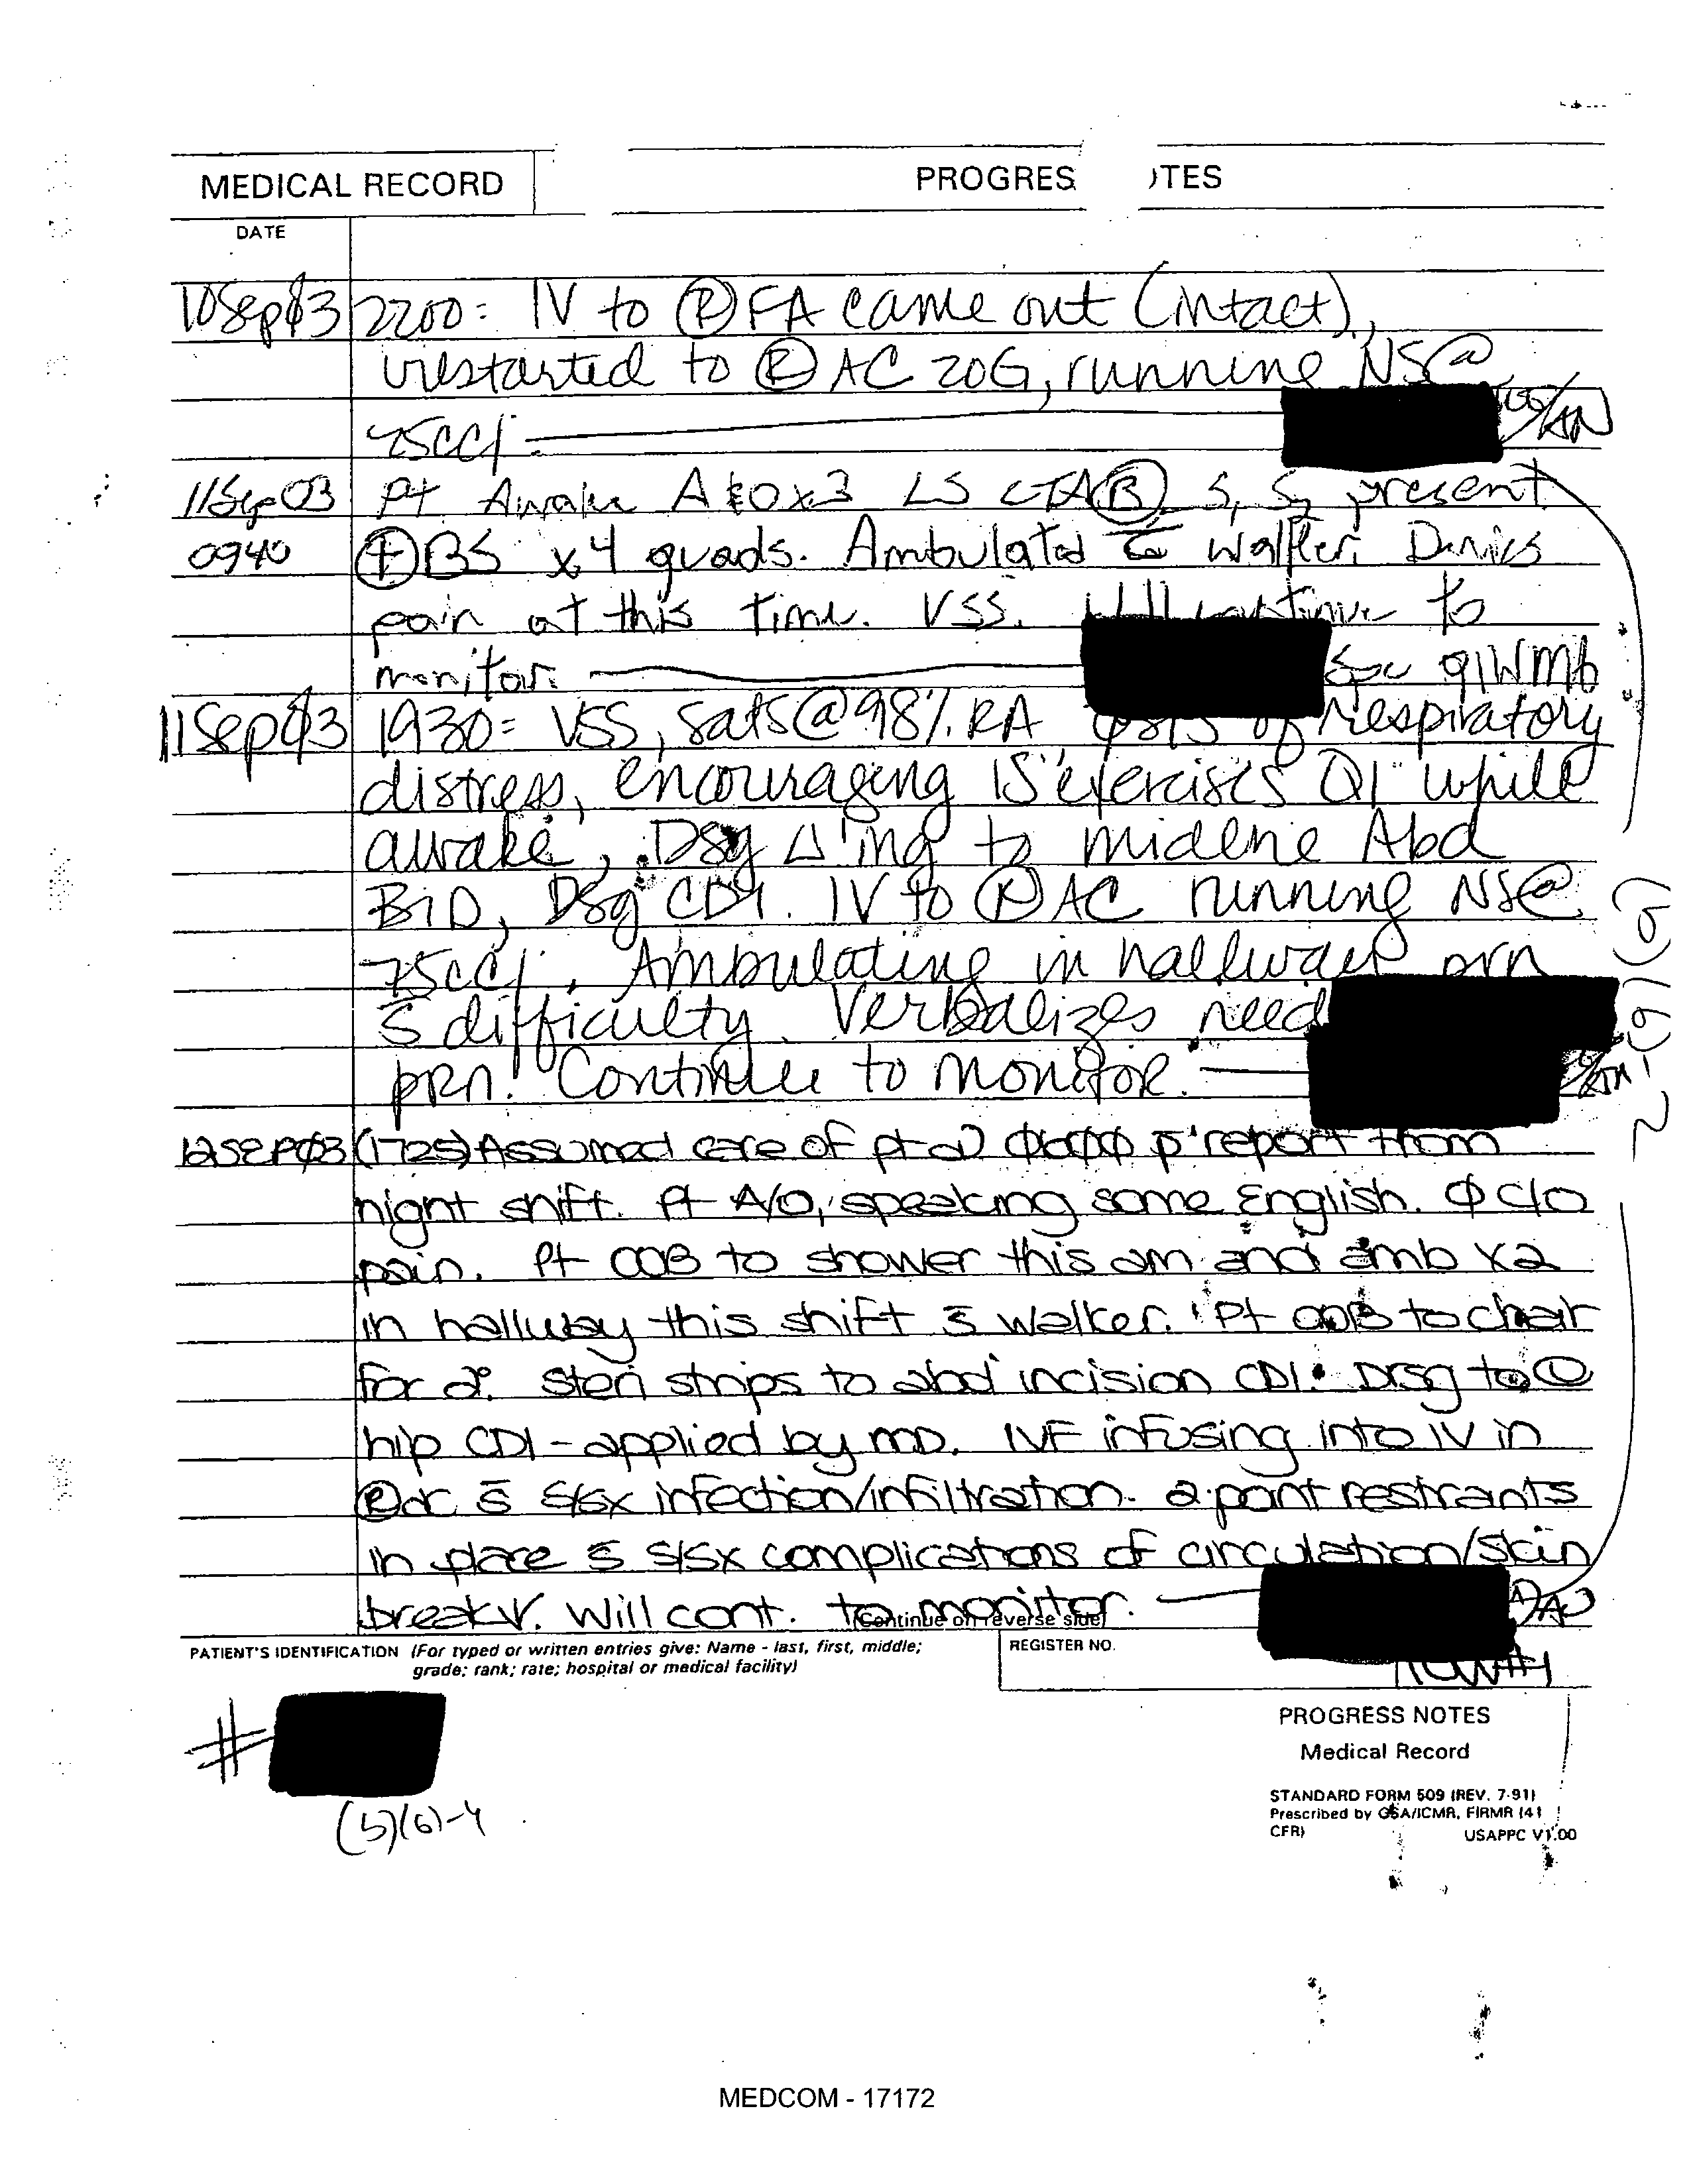 MEDICAL RECORD
PROGRES OTES
DATE
10Sepø3 2200: IV to Ⓡ FA came out (intact),
restarted to Ⓡ AC 20G, running NS@
75cc/°. /AN
11Sep03 Pt Awake A&Ox3 LS CTA Ⓑ S1 S2 present
0940 ⊕BS x 4 quads. Ambulated c̄ walker. Denies
pain at this time. VSS. Will continue to
monitor. Spc 91WM6
11Sepø3 1930: VSS, Sats@98% RA ø s/s of respiratory
distress, encouraging IS exercises Q1° while
awake, Dsg Δ'ing to midline Abd
BID, Dsg CDI. IV to Ⓡ AC running NS@
75cc/°. Ambulating in hallways prn
s̄ difficulty. Verbalizes need
prn. Continue to monitor. /AN
12SEPø3 (1725) Assumed care of pt @ ø6øø p̄ report from
night shift. Pt A/O, speaking some English. ø c/o
pain. Pt OOB to shower this am and amb x2
in hallway this shift s̄ walker. Pt OOB to chair
for 2°. Steri strips to abd incision CDI. Drsg to Ⓛ
hip CDI - applied by MD. IVF infusing into IV in
Ⓡ ac s̄ s/sx infection/infiltration. 2 point restraints
in place s̄ s/sx complications of circulation/skin
break↓. Will cont. to monitor.
(Continue on reverse side)
PATIENT'S IDENTIFICATION (For typed or written entries give: Name - last, first, middle;
grade; rank; rate; hospital or medical facility)
REGISTER NO.
ICW#1
#
(b)(6)-4
(b)(6)-2
PROGRESS NOTES
Medical Record
STANDARD FORM 509 (REV. 7-91)
Prescribed by GSA/ICMR, FIRMR (41
CFR)
USAPPC V1.00
MEDCOM - 17172